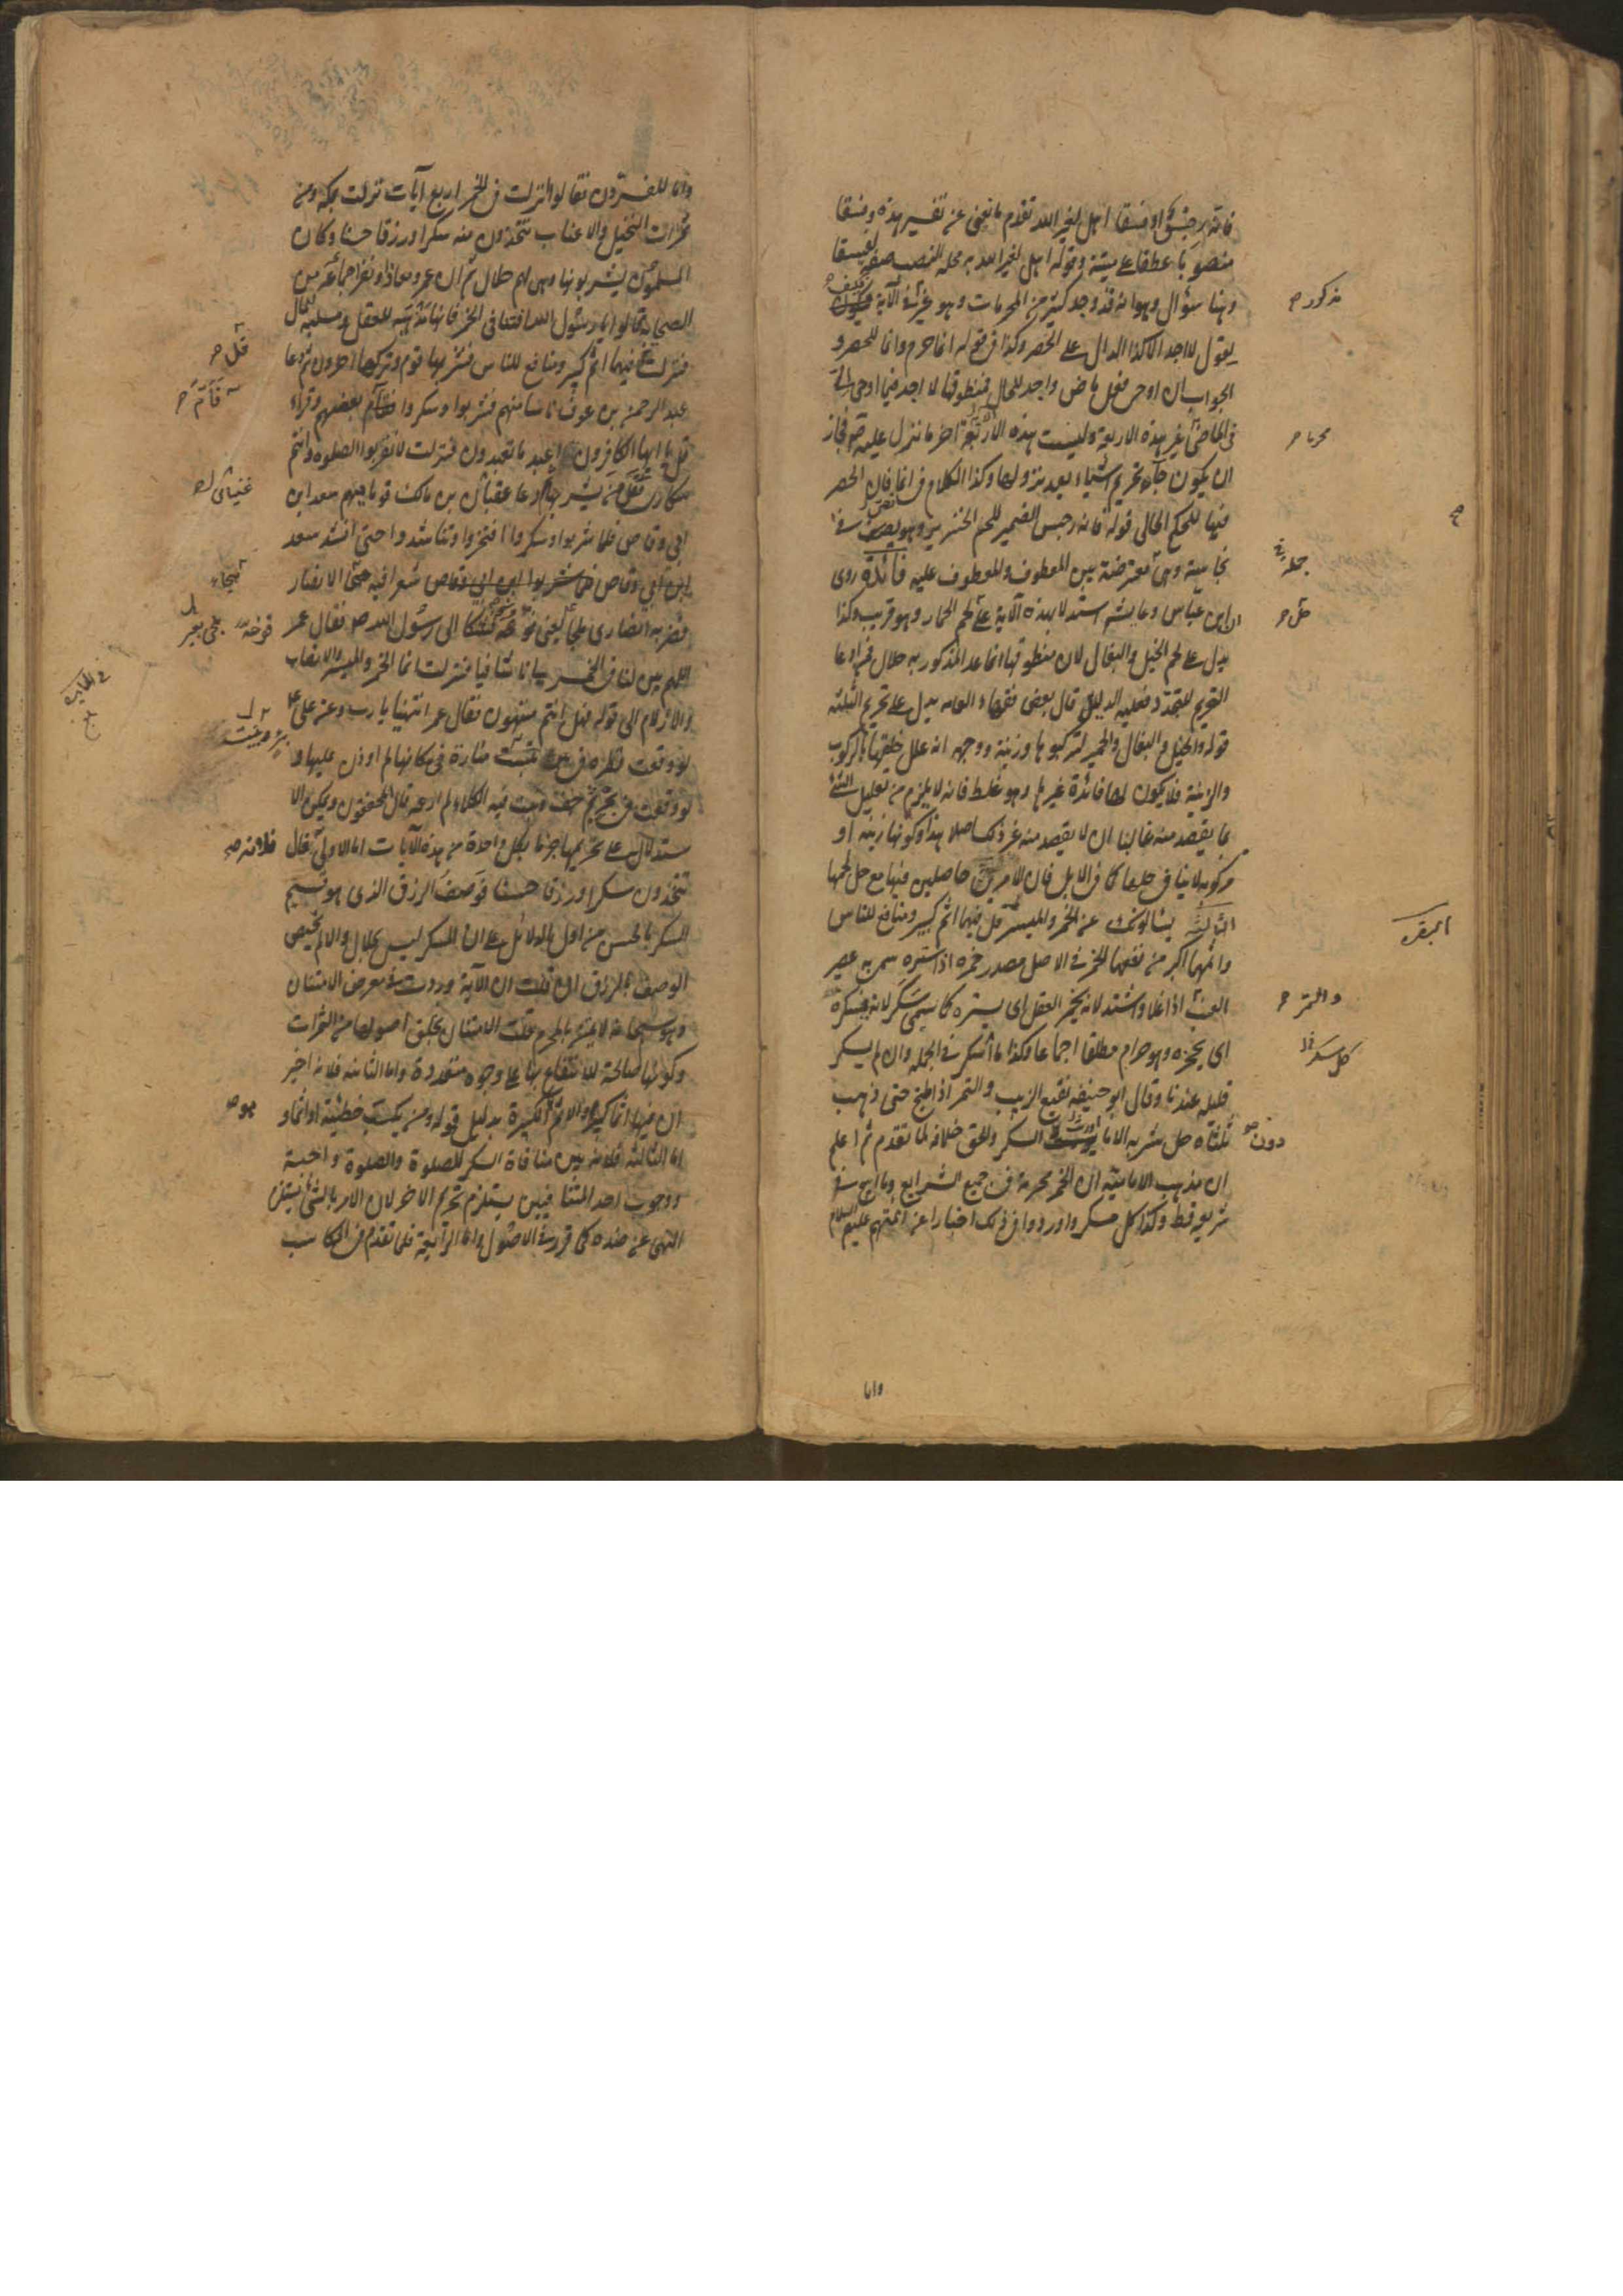 فانه رجس او فسقا اهل لغير الله تقدم ما يغنى عن تفسير هذه وفسقا
منصوبا عطفا على ميتة وقوله اهل لغير الله به محله النصب صفة لفسقا
وهنا سؤال وهو انه قد وجد كثير من المحرمات وهو غير في الآية فكيف
مذكور صح
يقول لا اجد الا كذا الدال على الحصر وكذا في قوله انما حرم وانما للحصر و
الجواب ان اوحى فعل ماض واجد للحال فمنطوقها لا اجد فيما اوحى الى
في الماضي غير هذه الاربعة وليست هذه الاربعة اخر ما نزل عليه ص فجاز
محرما صح
ان يكون جاء تحريم اشياء بعد نزولها وكذا الكلام في انما فان الحصر
فيها للحكم الحالى قوله فانه رجس الضمير للحم الخنزير وهو نص في
نجاسته وهي معترضة بين المعطوف والمعطوف عليه فائدة روى
جملة
ان ابن عباس وعايشه استدلا بهذه الآية على لحم الحمار وهو قريب وكذا
حل صح
يدل على لحم الخيل والبغال لان منطوقها ما عدا المذكور به حلال فمن ادعا
التحريم للتجدد فعليه الدليل قال بعض فقهاء العامه يدل على تحريم الثلثة
قوله والخيل والبغال والحمير لتركبوها وزينة ووجهه انه علل خلقها بالركوب
والزينة فلا يكون لها فائدة غيرها وهو غلط فانه لا يلزم من تعليل الشئ
بما يقصد منه غالبا ان لا يقصد منه غير ذلك اصلا هذا وكونها زينة او
مركوبه لا ينافى حلها كما في الابل فان الامرين حاصلين فيها مع حل لحمها
الثالثة يسئلونك عن الخمر والميسر قل فيهما اثم كبير ومنافع للناس
البقره
واثمهما اكبر من نفعهما الخمر في الاصل مصدر خمره اذا ستره سمى به عصير
العنب اذا غلا واشتد لانه يخمر العقل اى يستره كما سمى سكرا لانه يسكره
والتمر صح
اى يحجزه وهو حرام مطلقا اجماعا وكذا ما اسكر في الجمله وان لم يسكر
قليله عندنا وقال ابو حنيفه نقيع الزبيب والتمر اذا طبخ حتى ذهب
ثلثاه حل شربه الا ما السكر والحق خلافه لما تقدم ثم اعلم
دون
ان مذهب الامامية ان الخمر محرمة في جميع الشرايع وما ابيح في
شريعة قط وكذا كل مسكر واوردوا في ذلك اخبارا عن ائمتهم عليهم السلام
واما
واما المفسرون فقالوا نزلت في الخمر اربع آيات نزلت بمكه ومن
ثمرات النخيل والاعناب تتخذون منه سكرا ورزقا حسنا وكان
المسلمون يشربونها وهى لهم حلال ثم ان عمر ومعاذا ونفرا جماعة من
الصحابة قالوا يا رسول الله افتنا في الخمر فانها مذهبة للعقل ومسلبة للمال
فنزلت فيهما اثم كبير ومنافع للناس فشربها قوم وتركها اخرون ثم دعا
قل صح
عبد الرحمن بن عوف ناسا منهم فشربوا وسكروا فقام بعضهم وقرأ
فأم صح
قل يا ايها الكافرون اعبد ما تعبدون فنزلت لا تقربوا الصلوة وانتم
سكارى فقل من يشربها ثم دعا عتبان بن مالك قوما فيهم سعد ابن
ابى وقاص فلما شربوا وسكروا افتخروا وتناشدوا حتى انشد سعد
ابن ابى وقاص شعرا فيه هجا الانصار
فضربه انصارى الى رسول الله ص فقال عمر
اللهم بين لنا في الخمر بيانا شافيا فنزلت انما الخمر والميسر والانصاب
والازلام الى قوله فهل انتم منتهون فقال عمر انتهينا يا رب وعن على ع
لو وقعت قطره في بئر فبنيت منارة في مكانها لم اوذن عليها و
لو وقعت في بحر ثم جف ونبت فيه الكلاء لم ارعه قال المحققون ويمكن الا
ستدلال على تحريمها جزما بكل واحدة من هذه الآيات اما الاولى قال
فلانه صح
تتخذون سكرا ورزقا حسنا فوصف الرزق الذى هو قسيم
السكر بالحسن من اول الدلائل على ان السكر ليس بحلال والا لم يخصص
الوصف بالرزق ان قلت ان الآية وردت في معرض الامتنان
وهو سبحانه لا يمتن بالمحرم قلت الامتنان بخلق اصولها من الثمرات
وكونها صالحة للانتفاع بها على وجوه متعددة واما الثانيه فلانه اخبر
ان فيها اثما كبيرا والاثم الكبيرة بدليل قوله ومن يكسب خطيئة او اثما و
هو صح
اما الثالثه فلانه بين منافاة السكر للصلوة والصلوة واجبة
ووجوب احد المتنافيين يستلزم تحريم الاخر لان الامر بالشئ يستلزم
النهى عن ضده كما قرر في الاصول واما الرابعة فلما تقدم في المكاسب